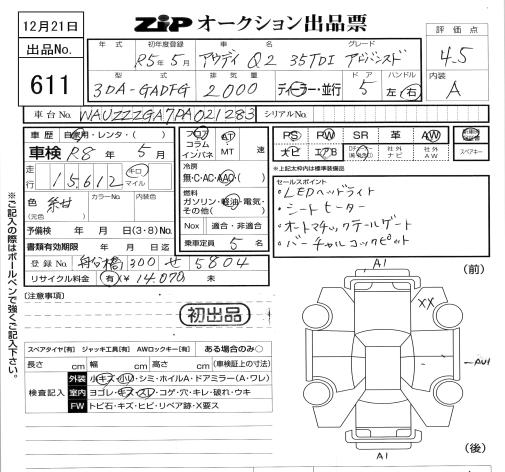 12月21日
出品No.
611
ZIP オークション出品票
年式 初年度登録 車名 グレード
R5年5月 アウディ Q2 35TDI アドバンスド
型式 排気量 ドア ハンドル
3DA-GADFG 2000 ディーラー・並行 5 左・右
評価点
4.5
内装
A
車台No. WAUZZZGA7PA021283 シリアルNo.
車歴 自家用・レンタ・( )
車検 R8年5月
走行 15,612 キロ マイル
色 紺 (元色) カラーNo. 内装色
予備検 年 月 日(3・8)No.
書類有効期限 年 月 日迄
登録No. 船橋 300 せ 5804
リサイクル料金 有(¥14,070) 未
フロア コラム インパネ AT MT 速
冷房
無・C・AC・AAC・( )
燃料
ガソリン・軽油・電気・その他( )
Nox 適合・非適合
乗車定員 5 名
PS PW SR 革 AW
ナビ エアB 社外ナビ 社外AW スペアキー
*上記太枠内は標準装備品
セールスポイント
・LEDヘッドライト
・シートヒーター
・オートマチックテールゲート
・バーチャルコックピット
※ご記入の際はボールペンで強くご記入下さい。
[注意事項]
初出品
スペアタイヤ[有] ジャッキ工具[有] AWロックキー[有] ある場合のみ○
長さ cm 幅 cm 高さ cm (車検証上の寸法)
検査記入
外装 小キズ・小凹・シミ・ホイルA・ドアミラー(A・ワレ)
室内 ヨゴレ・キズ・スレ・コゲ・穴・キレ・破れ・ウキ
FW トビ石・キズ・ヒビ・リペア跡・X要ス
A1
(前)
XX
AU1
A1
(後)